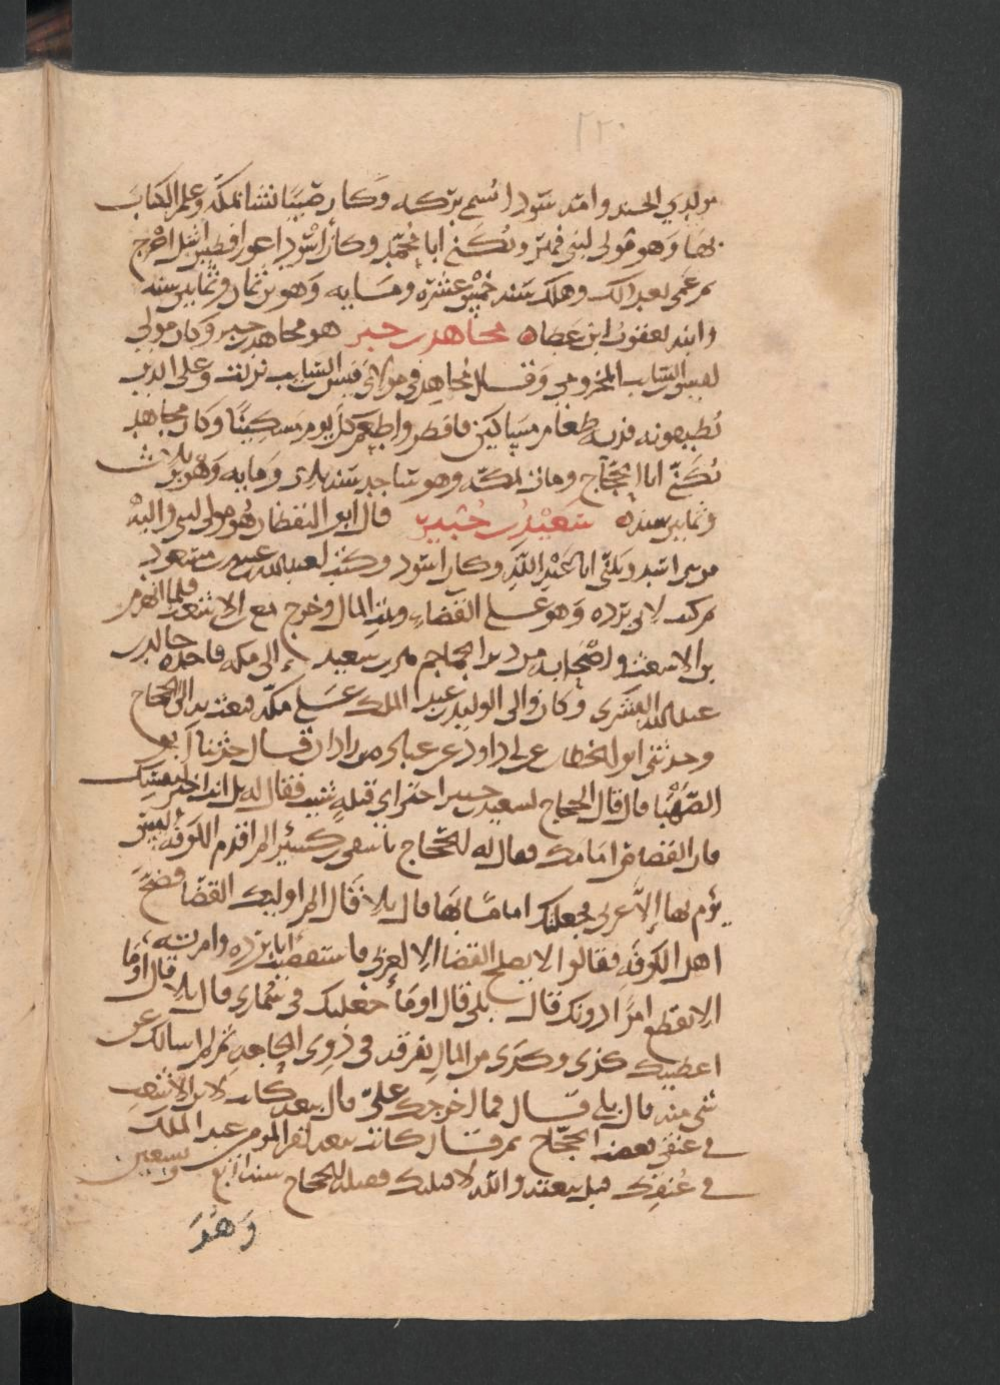 ٢٢٠
مولدي الجند وامه سودا اسمها بركه وكان صبيا نشا بمكة وعلم الكتاب
بها وهو مولى لبني فهر ويكنى ابا محمد وكان اسود اعور افطس اشل اعرج
ثم عمي بعد ذلك وهلك سنه خمس عشره ومايه وهو بن ثمان وثمانين سنه
وابنه يعقوب ابن عطاه مجاهد بن جبر هو مجاهد بن جبر وكان مولى
لقيس بن السايب المخزومي وقال مجاهد في مولاي قيس بن السايب نزلت وعلى الذين
يطيقونه فديه طعام مساكين فافطر واطعم كل يوم مسكينا وكان مجاهد
يكنى ابا الحجاج ومات بمكه وهو ساجد سنه ثلاث ومايه وهو بن ثلاث
وثمانين سنه سعيد بن جبير قال ابو اليقظان هو مولى لبني والبه
من بني اسد ويكنى ابا عبد الله وكان اسود وكتب لعبد الله بن عتبه بن مسعود
ثم كتب لابي برده وهو على القضاء وبيت المال وخرج مع ابن الاشعث فلما انهزم
بن الاشعث واصحابه من دير الجماجم هرب سعيد الى مكه فاخذه خالد بن
عبد الله القسري وكان والي الوليد بن عبد الملك على مكة فبعث به الى الحجاج
وحدثني ابو الخطاب عن ابي داود عن عماره بن زادان قال حدثنا ابو
الصهبا قال قال الحجاج لسعيد بن جبير اختر اي قتله شيت فقال له بل انت اختر لنفسك
فان القصاص امامك فقال له الحجاج يا شقي بن كسير الم اقدم الكوفه وليس
يؤم بها الا عربي فجعلتك اماما بها قال بلا قال الم اوليك القضا فضج
اهل الكوفه فقالوا لا يصلح القضا الا لعربي فاستقضيت ابا برده وامرته
الا يقطع امرا دونك قال بلى قال اوما جعلتك في سماري قال بلا قال اوما
اعطيتك كذى وكذى من المال تفرقه في ذوي الحاجه ثم لم اسالك عن
شي منه قال بلى قال فما اخرجك علي قال بيعه كانت لابن الاشعث
في عنقي فغضب الحجاج ثم قال كانت بيعه امير المومنين عبد الملك
في عنقك قبل بيعته والله لاقتلنك فقتله الحجاج سنه اربع وتسعين
وهو